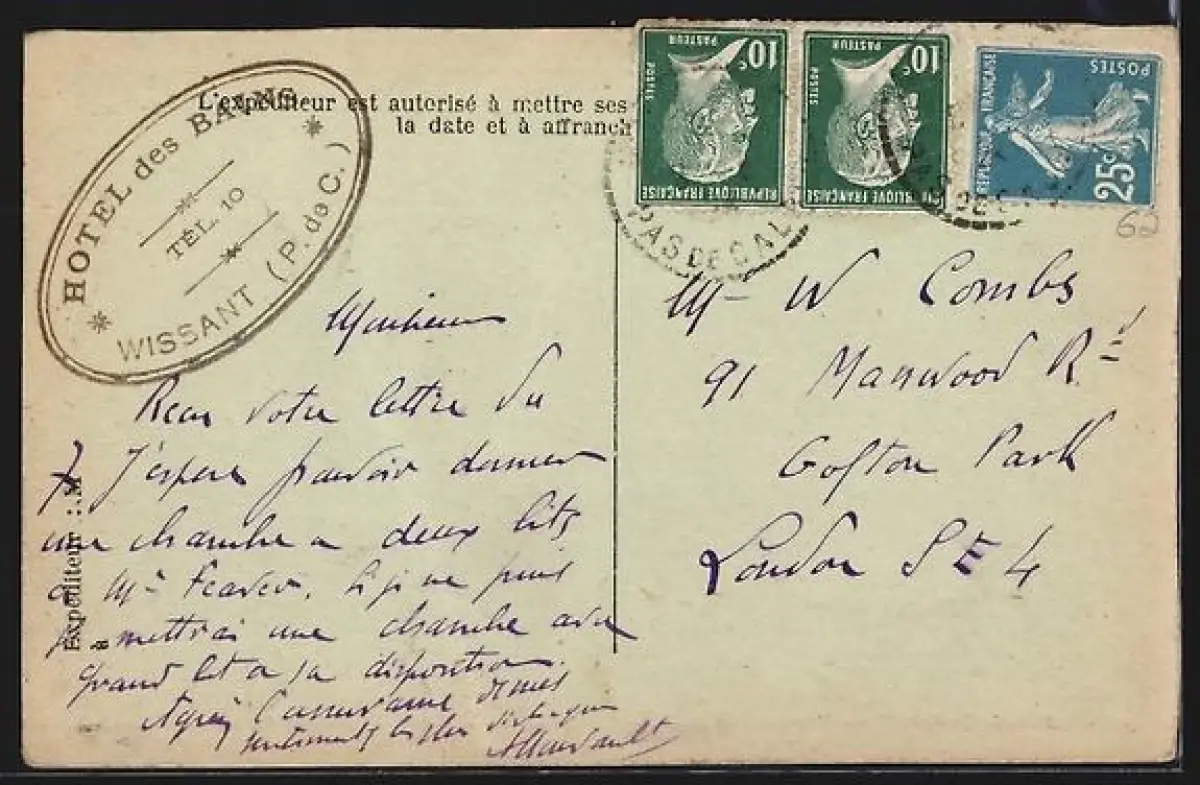 HOTEL des BAINS
TÉL. 10
WISSANT (P. de C.)
L'expéditeur est autorisé à mettre ses
la date et à affranch
POSTES
PASTEUR
10c
RÉPUBLIQUE FRANÇAISE
POSTES
PASTEUR
10c
RÉPUBLIQUE FRANÇAISE
REPUBLIQUE FRANÇAISE
POSTES
25c
PAS DE CAL
PAS DE CA
62
Monsieur
Recu votre lettre du
7 J'espere pouvoir donner
une chambre a deux lits
a Mr si je ne puis
je mettrai une chambre avec
grand lit a sa disposition.
Agréez l'assurance de mes
sentiments les plus
Expéditeur : M
à
Mr W Combs
91 Manwood Rd
Crofton Park
London SE 4